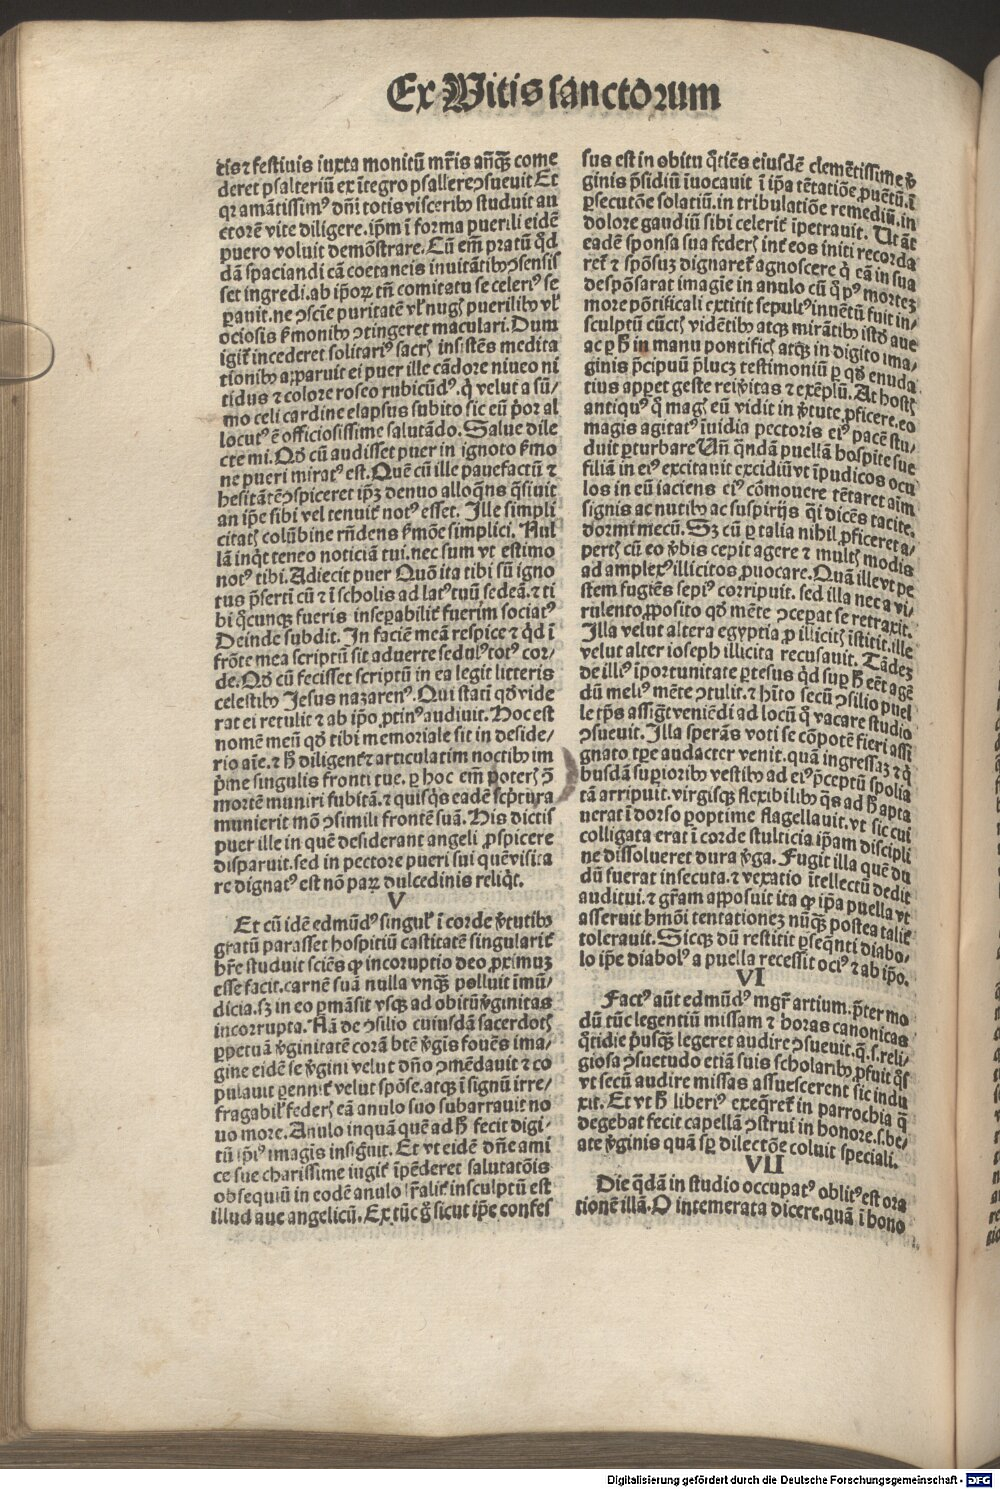 Ex Vitis sanctorum
dis ⁊ festiuis iuxta monitū mr̄is an̄qꝫ come
deret psalteriū ex ītegro psallere ↄsueuit Et
qꝛ amātissimꝰ dn̄i totis visceribꝰ studuit au
ctorē vite diligere. ip̄m ī forma puerili eidē
puero voluit demōstrare. Cū em̄ pratū qd̄
dā spaciandi cā coetaneis inuitātibꝰ ↄsensis
set ingredi. ab ip̄oꝝ tn̄ comitatu se celeriꝰ se
ꝑauit. ne ↄscīe puritatē vl̓ nugis puerilibꝰ vl̓
ociosis ẜmonibꝰ ↄtingeret maculari. Dum
igit̉ incederet solitariꝰ sacris insistēs medita
tionibꝰ apparuit ei puer ille cādore niueo ni
tidus ⁊ colore roseo rubicūdꝰ. q̇ velut a sū/
mo celi cardine elapsus subito sic eū p̓or al
locutꝰ ē officiosissime salutādo. Salue dile
cte mi. Qd̄ cū audisset puer in ignoto ẜmo
ne pueri miratꝰ est. Quē cū ille pauefactū ⁊
hesitātē ↄspiceret ip̄ꝫ denuo alloquēs q̄siuit
an ip̄e sibi vel tenuit̉ notꝰ esset. Ille simpli
citatis colūbine rn̄dens ẜmōe simplici. Nul
lā inq̇t teneo noticiā tui. nec sum vt estimo
notꝰ tibi. Adiecit puer Quō ita tibi sū igno
tus p̄serti cū ⁊ ī scholis ad latꝰ tuū sedeā. ⁊ ti
bi q̇cunqꝫ fueris insepabilit̉ fuerim sociatꝰ
Deinde subdit. In faciē meā respice ⁊ qd̄ ī
frōte mea scriptū sit aduerte sedulꝰ totꝰ cor/
de. Qd̄ cū fecisset scriptū in ea legit litteris
celestibꝰ Jesus nazarenꝰ. Qui statī qd̄ vide
rat ei retulit ⁊ ab ip̄o ꝓtinꝰ audiuit. Hoc est
nomē meū qd̄ tibi memoriale sit in deside/
rio aīe. ⁊ h̄ diligent̉ ⁊ articulatim noctibꝰ im
p̓me singulis fronti tue. ꝑ hoc em̄ poteris ↄ̄
mortē muniri subitā. ⁊ quisq̇s eadē scp̄tura
munierit mō ↄsimili frontē suā. His dictis
puer ille in quē desiderant angeli ꝓspicere
disparuit. sed in pectore pueri sui quē visita
re dignatꝰ est nō paꝝ dulcedinis reliq̇t.
V
Et cū idē edmūdꝰ singul̓ ī corde v̓tutibꝰ
gratū parasset hospitiū castitatē singularit̉
hr̄e studuit sciēs ꝙ incoruptio deo proximuꝫ
esse facit. carnē suā nulla vnqꝫ polluit īmū/
dicia. sꝫ in eo ꝑmāsit vsqꝫ ad obitū v̓ginitas
incorrupta. Nā de ↄsilio cuiusdā sacerdotis
ꝑpetuā v̓ginitatē corā btē v̓gis fouēs ima/
gine eidē se v̓gini velut dn̄o ↄmēdauit ⁊ co
pulauit ꝑennit̉ velut spōse. atqꝫ ī signū irre/
fragabil̓ federis eā anulo suo subarrauit no
uo more. Anulo inquā quē ad h̄ fecit digi/
tū ip̄iꝰ imagīs insigr̄uit. Et vt eidē dn̄e ami
ce sue charissime iugit̉ īpēderet salutatōis
obsequiū in eodē anulo insculptū est
illud aue angelicū. Ex tūc g̊ sicut ip̄e confes
sus est in obitu q̄tiēs eiusdē clemētissime v̓
ginis p̄sidiū īuocauit ī ip̄a tētatiōe ꝓuētū. ī
ꝑsecutōe solatiū. in tribulatiōe remediū. in
dolore gaudiū sibi celerit̉ īpetrauit. Ut āt
eadē sponsa sua federis int̉ eos initi recorda
ret̉ ⁊ spōsuꝫ dignaret̉ agnoscere q̇ eā in sua
despōsarat imagīe in anulo cū q̊ pꝰ morteꝫ
more pōtificali extitit sepultꝰ inuētū fuit in/
sculptū cūctis vidētibꝰ atqꝫ mirātibꝰ istd̄ aue
ac ꝑ h̄ in manu pontificis atqꝫ in digito ima/
ginis p̄cipuū p̄lucꝫ testimoniū ꝑ qd̄ enuda
tius appet geste rei v̓itas ⁊ exēplū. At hostis
antiquꝰ q̊ magis eū vidit in v̓tute ꝓficere. eo
magis agitatꝰ īuidia pectoris eiꝰ pacē stu/
duit ꝑturbare Un̄ q̄ndā puellā hospite sue
filiā in eiꝰ excitauit excidiū vt īpudicos ocu
los in eū iaciens eiꝰ cōmouere tētaret aīm
signis ac nutibꝰ ac suspirijs q̄i dicēs tacite.
dormi mecū. Sꝫ cū ꝑ talia nihil ꝓficeret a/
pertis cū eo v̓bis cepit agere ⁊ multis modis
ad amplexꝰ illicitos ꝓuocare. Quā ille vt pe
stem fugiēs sepiꝰ corripuit. sed illa nec a vi/
rulento ꝓposito qd̄ mēte ↄceperat se retraxit.
Illa velut altera egyptia ꝓ illicitis īstitit. ille
velut alter ioseph illicita recusauit. Tādeꝫ
de illiꝰ īportunitate ꝑtesus qd̄ suꝑ h̄ eēt agē
dū meliꝰ mēte ↄtulit. ⁊ hīto secū ↄsilio puel
le tp̄s assigt veniēdi ad locū q̊ vacare studio
ↄsueuit. Illa sperās voti se cōpotē fieri assi
gnato tp̄e audacter venit. quā ingressaꝫ ⁊ q̇
busdā suꝑioribꝰ vestibꝰ ad eiꝰ p̄ceptū spolia
tā arripuit. virgisqꝫ flexibilibꝰ q̄s ad h̄ apta
uerat ī dorso ꝑoptime flagellauit. vt sic cui
colligata erat ī corde stulticia ip̄am discipli
ne dissolueret dura v̓ga. Fugit illa quē du
dū fuerat insecuta. ⁊ vexatio ītellectū dedit
auditui. ⁊ gr̄am apposuit ita ꝙ ip̄a puella vt
asseruit hmōi tentationeꝫ nūqꝫ postea talit̉
tolerauit. Sicqꝫ dū restitit ꝑseq̄nti diabo/
lo ip̄e diabolꝰ a puella recessit ociꝰ ⁊ ab ip̄o.
VI
Factꝰ aūt edmūdꝰ mgr̄ artium. p̄ter mo
dū tūc legentiū missam ⁊ horas canonicas
q̄tidie p̓usqꝫ legeret audire ↄsueuit. q̄. s. reli/
giosa ↄsuetudo etiā suis scholaribꝰ ꝓfuit q̄s
vt secū audire missas assuescerent sic indu
xit. Et vt h̄ liberiꝰ exeq̄ret̉ in parrochia q̄
degebat fecit capellā ↄstrui in honore. s. be/
ate v̓ginis quā sꝑ dilectōe coluit speciali.
VII
Die q̄dā in studio occupatꝰ oblitꝰ est ora
tionē illā. O intemerata dicere. quā ī bono
Digitalisierung gefördert durch die Deutsche Forschungsgemeinschaft - DFG